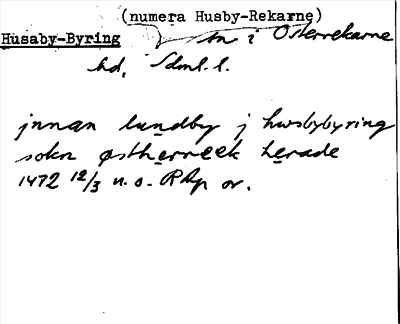 (numera Husby-Rekarne)
Husaby-Byring sn i Österrekarne
hd, Sdml. l.
jnnan lundby j hwsbybyring
sokn østherreek herade
1472 12/3 n. s. RAp or.